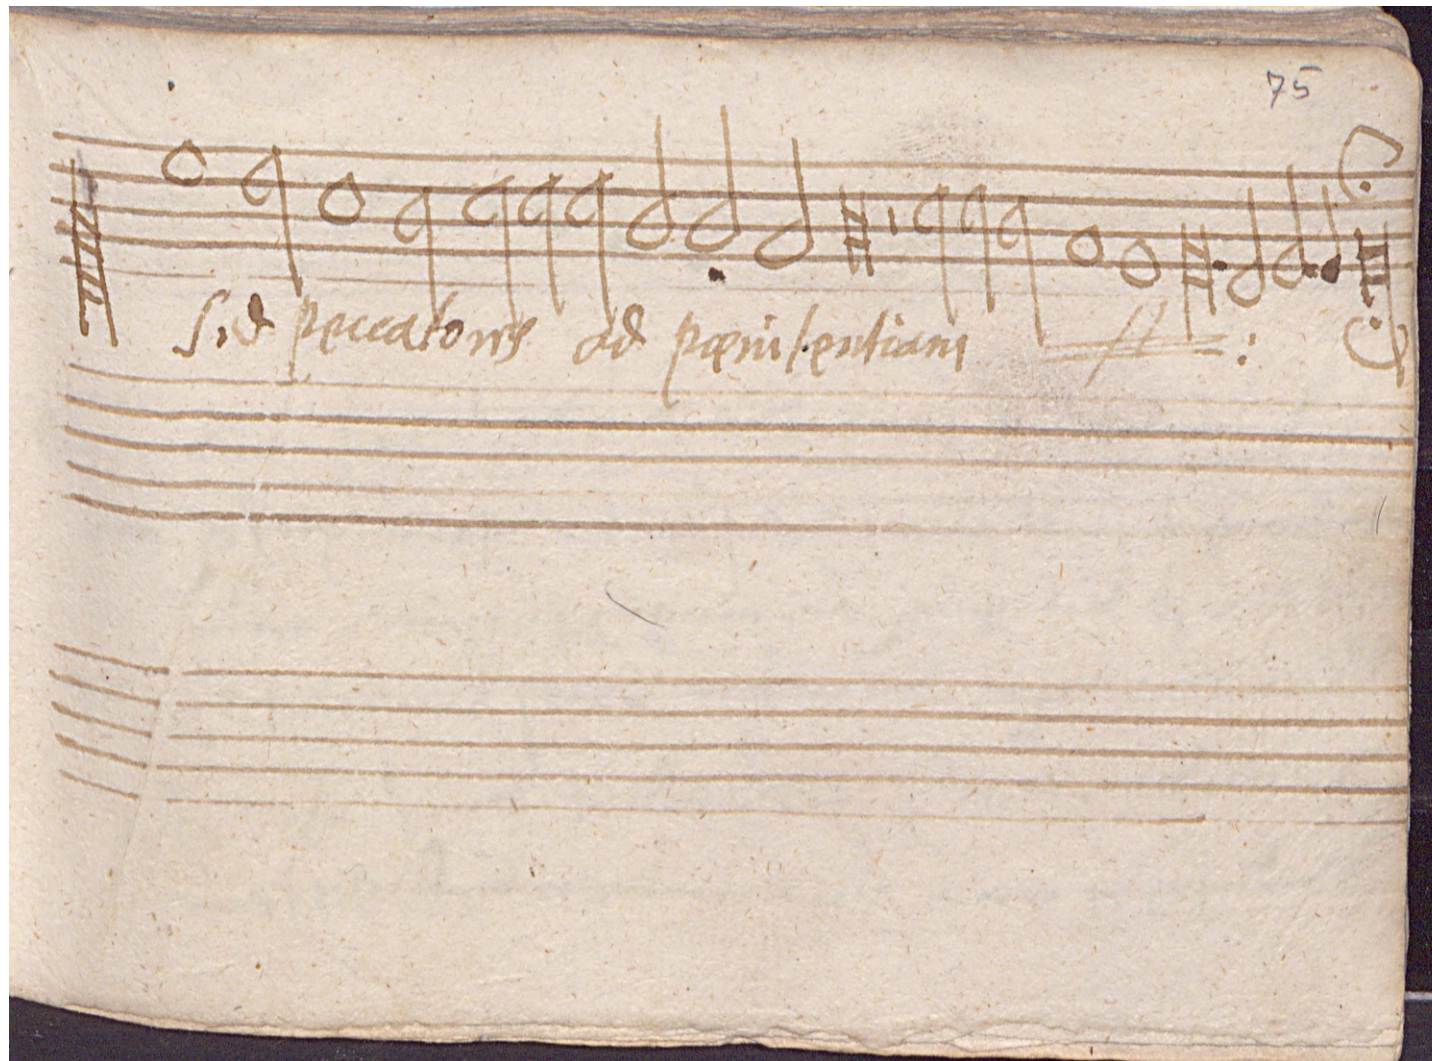 75
Sed peccatores ad pœnitentiam :